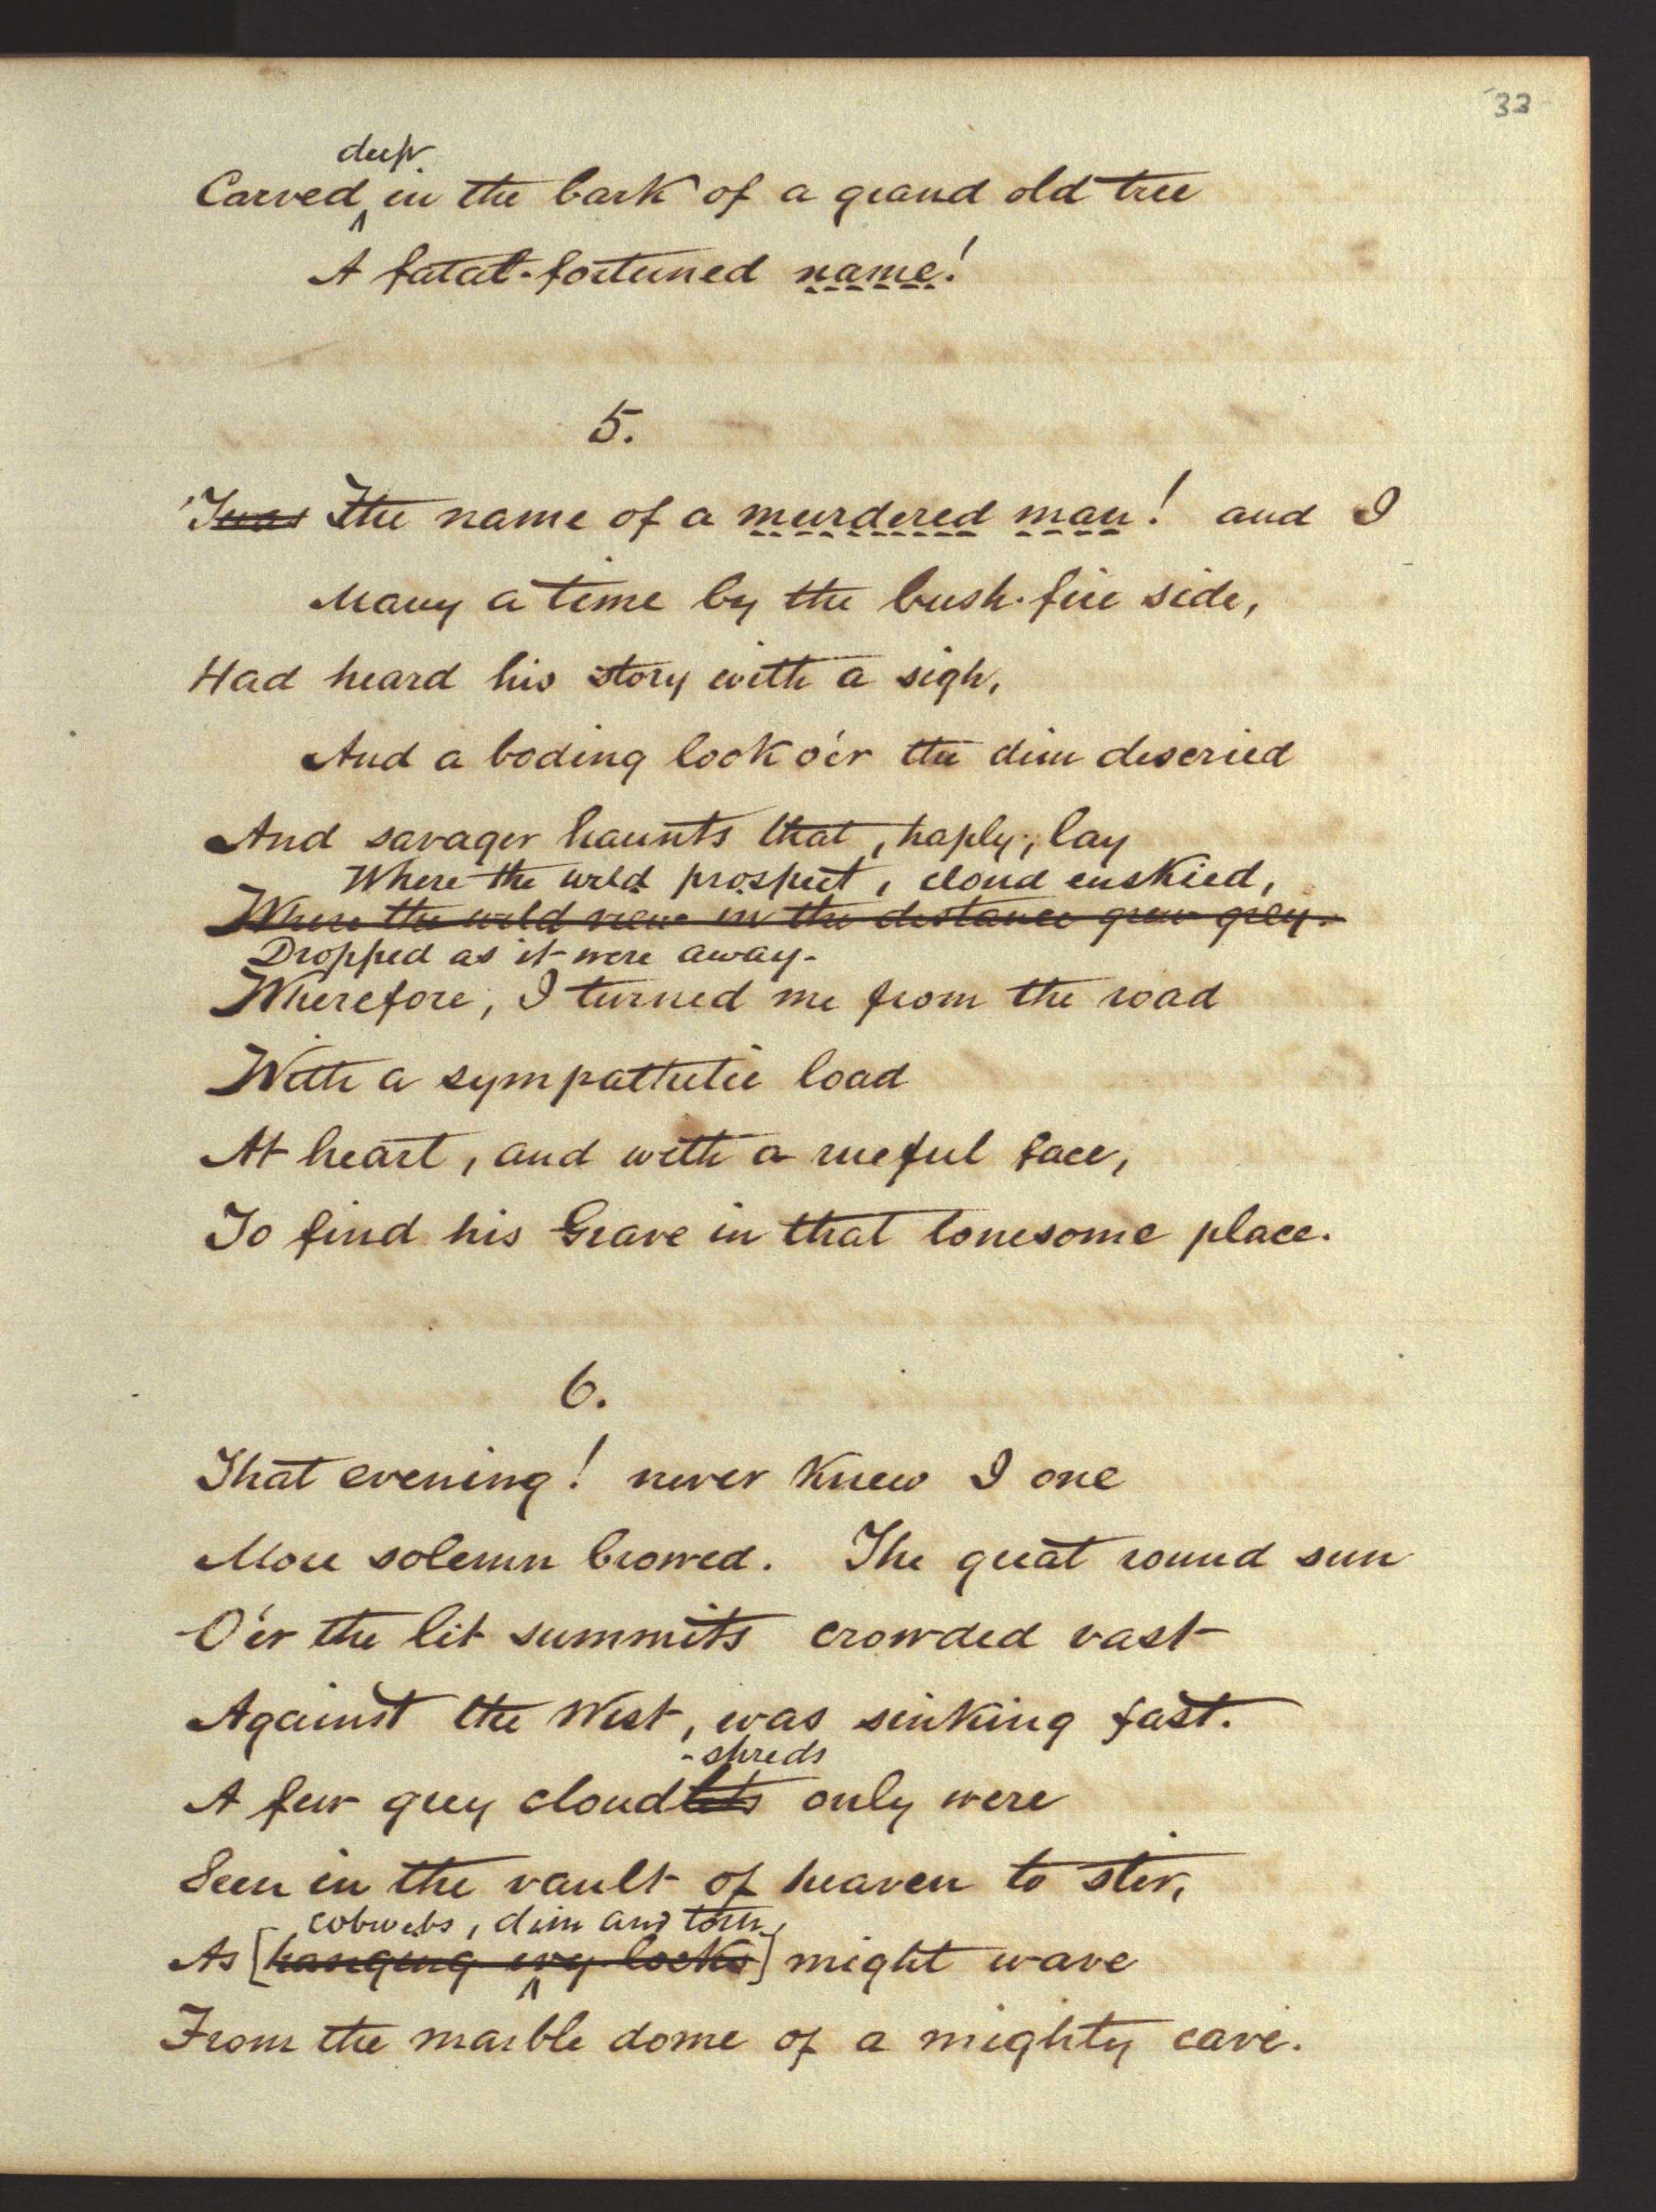 33
deep
Carved in the bark of a grand old tree
A fatal-fortuned name!
5.
'Twas The name of a murdered man! and I
Many a time by the bush-fire side,
Had heard his story with a sigh,
And a boding look o'er the dim descried
And savager haunts that, haply, lay
Where the wild prospect, cloud enskied,
Where the wild view in the distance grew grey.
Dropped as it were away.
Wherefore, I turned me from the road
With a sympathetic load
At heart, and with a rueful face,
To find his Grave in that lonesome place.
6.
That evening! never knew I one
More solemn browed. The great round sun
O'er the lit summits crowded vast
Against the West, was sinking fast.
-shreds
A few grey cloudlets only were
Seen in the vault of heaven to stir,
cobwebs, dim and torn,
As [hanging ivy-locks] might wave
From the marble dome of a mighty cave.